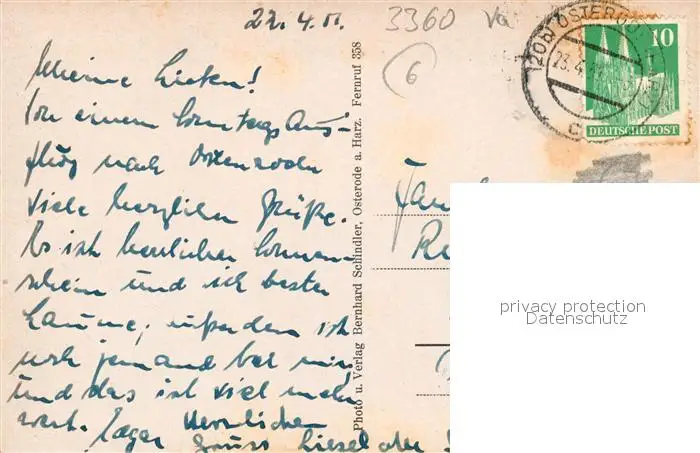 22.4.51.
3360 Va
6
(20b) OSTERODE (HARZ)
23.4.
c
10
DEUTSCHE POST
Meine Lieben!
Von einem Sonntags Aus-
flug nach Osterode
viele herzliche Grüße.
Es ist herrlicher Sonnen-
schein und ich bester
Laune, außerdem ist
noch jemand bei mir
und das ist viel mehr
wert.
Herzlichen
Gruss Liesel
Photo u. Verlag Bernhard Schindler, Osterode a. Harz. Fernruf 358
Fam
privacy protection
Datenschutz